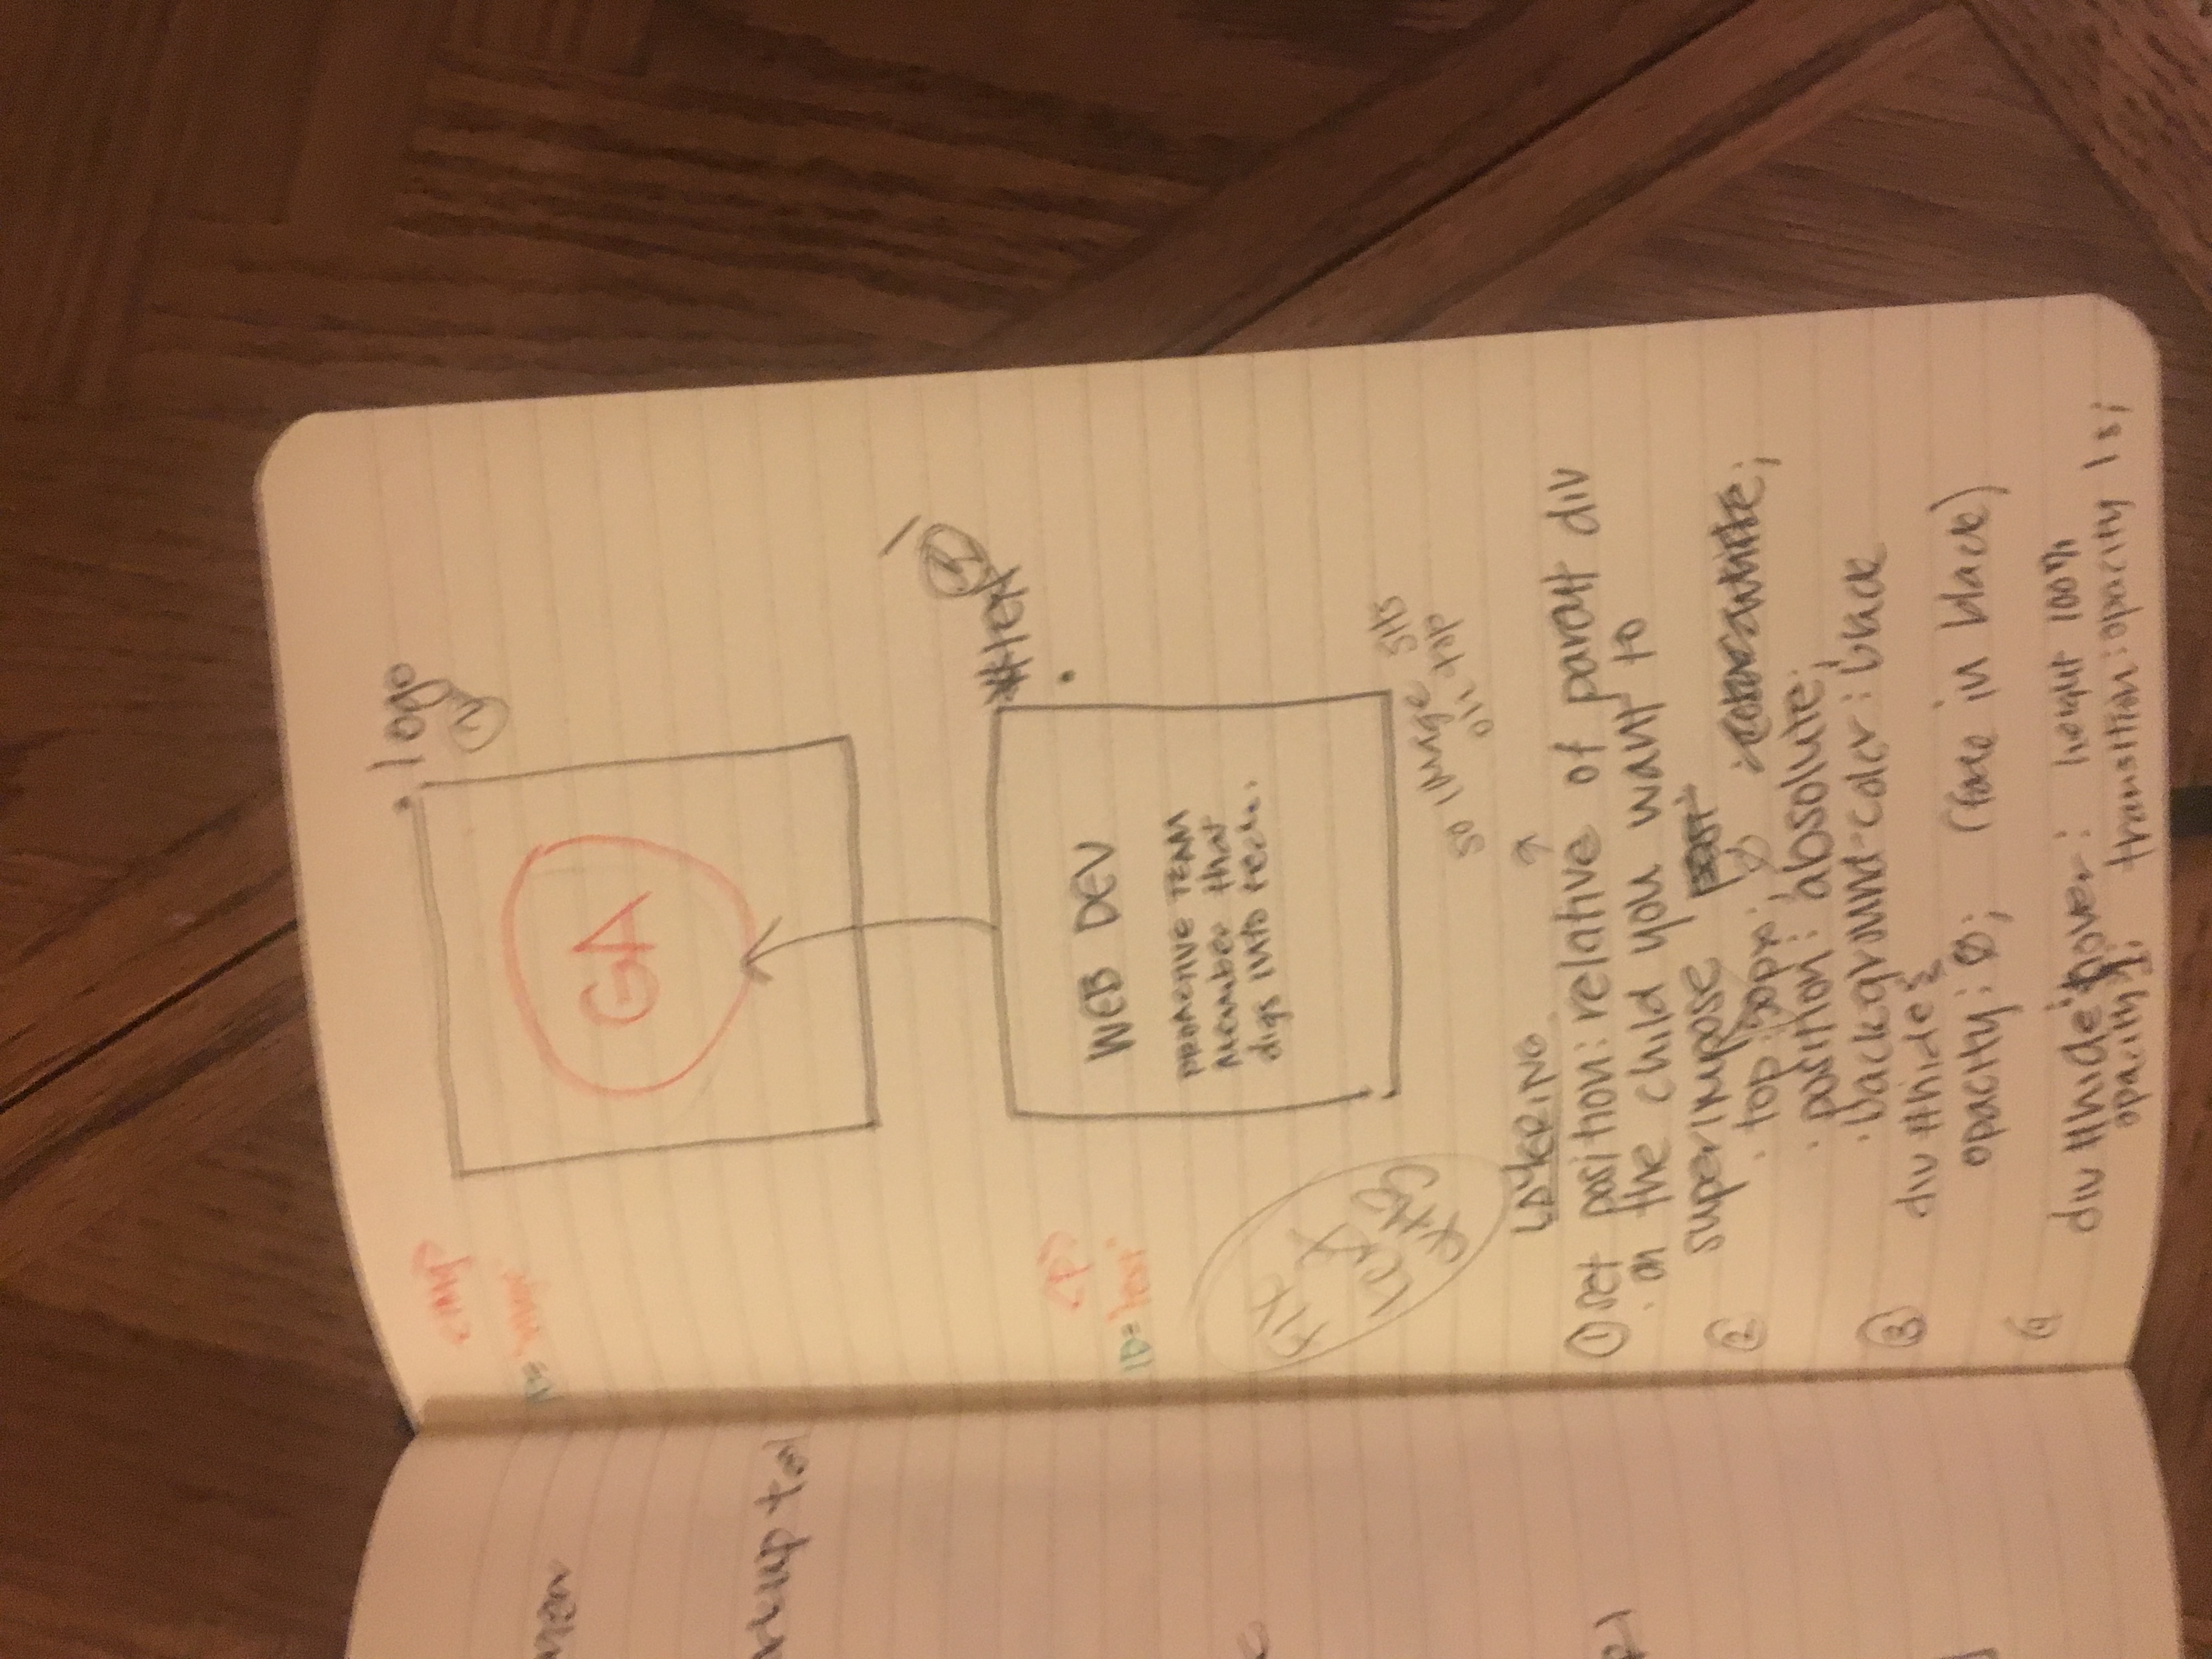 <img>
logo
2
ID= "image"
GA
#text
1
<p>
WEB DEV
ID= "text"
PROACTIVE TEAM
Member that
digs INTO tech.
FIX
text
so IMAGE sits
on top
LAYERING
① set position: relative of parent div
· on the child you want to
superimpose
② · top: 50px; 0
· position: absolute;
· background-color: black
③ div #hide {
opacity: 0; (fade in black)
4
div #hide:hover: height 100%
opacity 1; transition: opacity 1s;
arkup tool